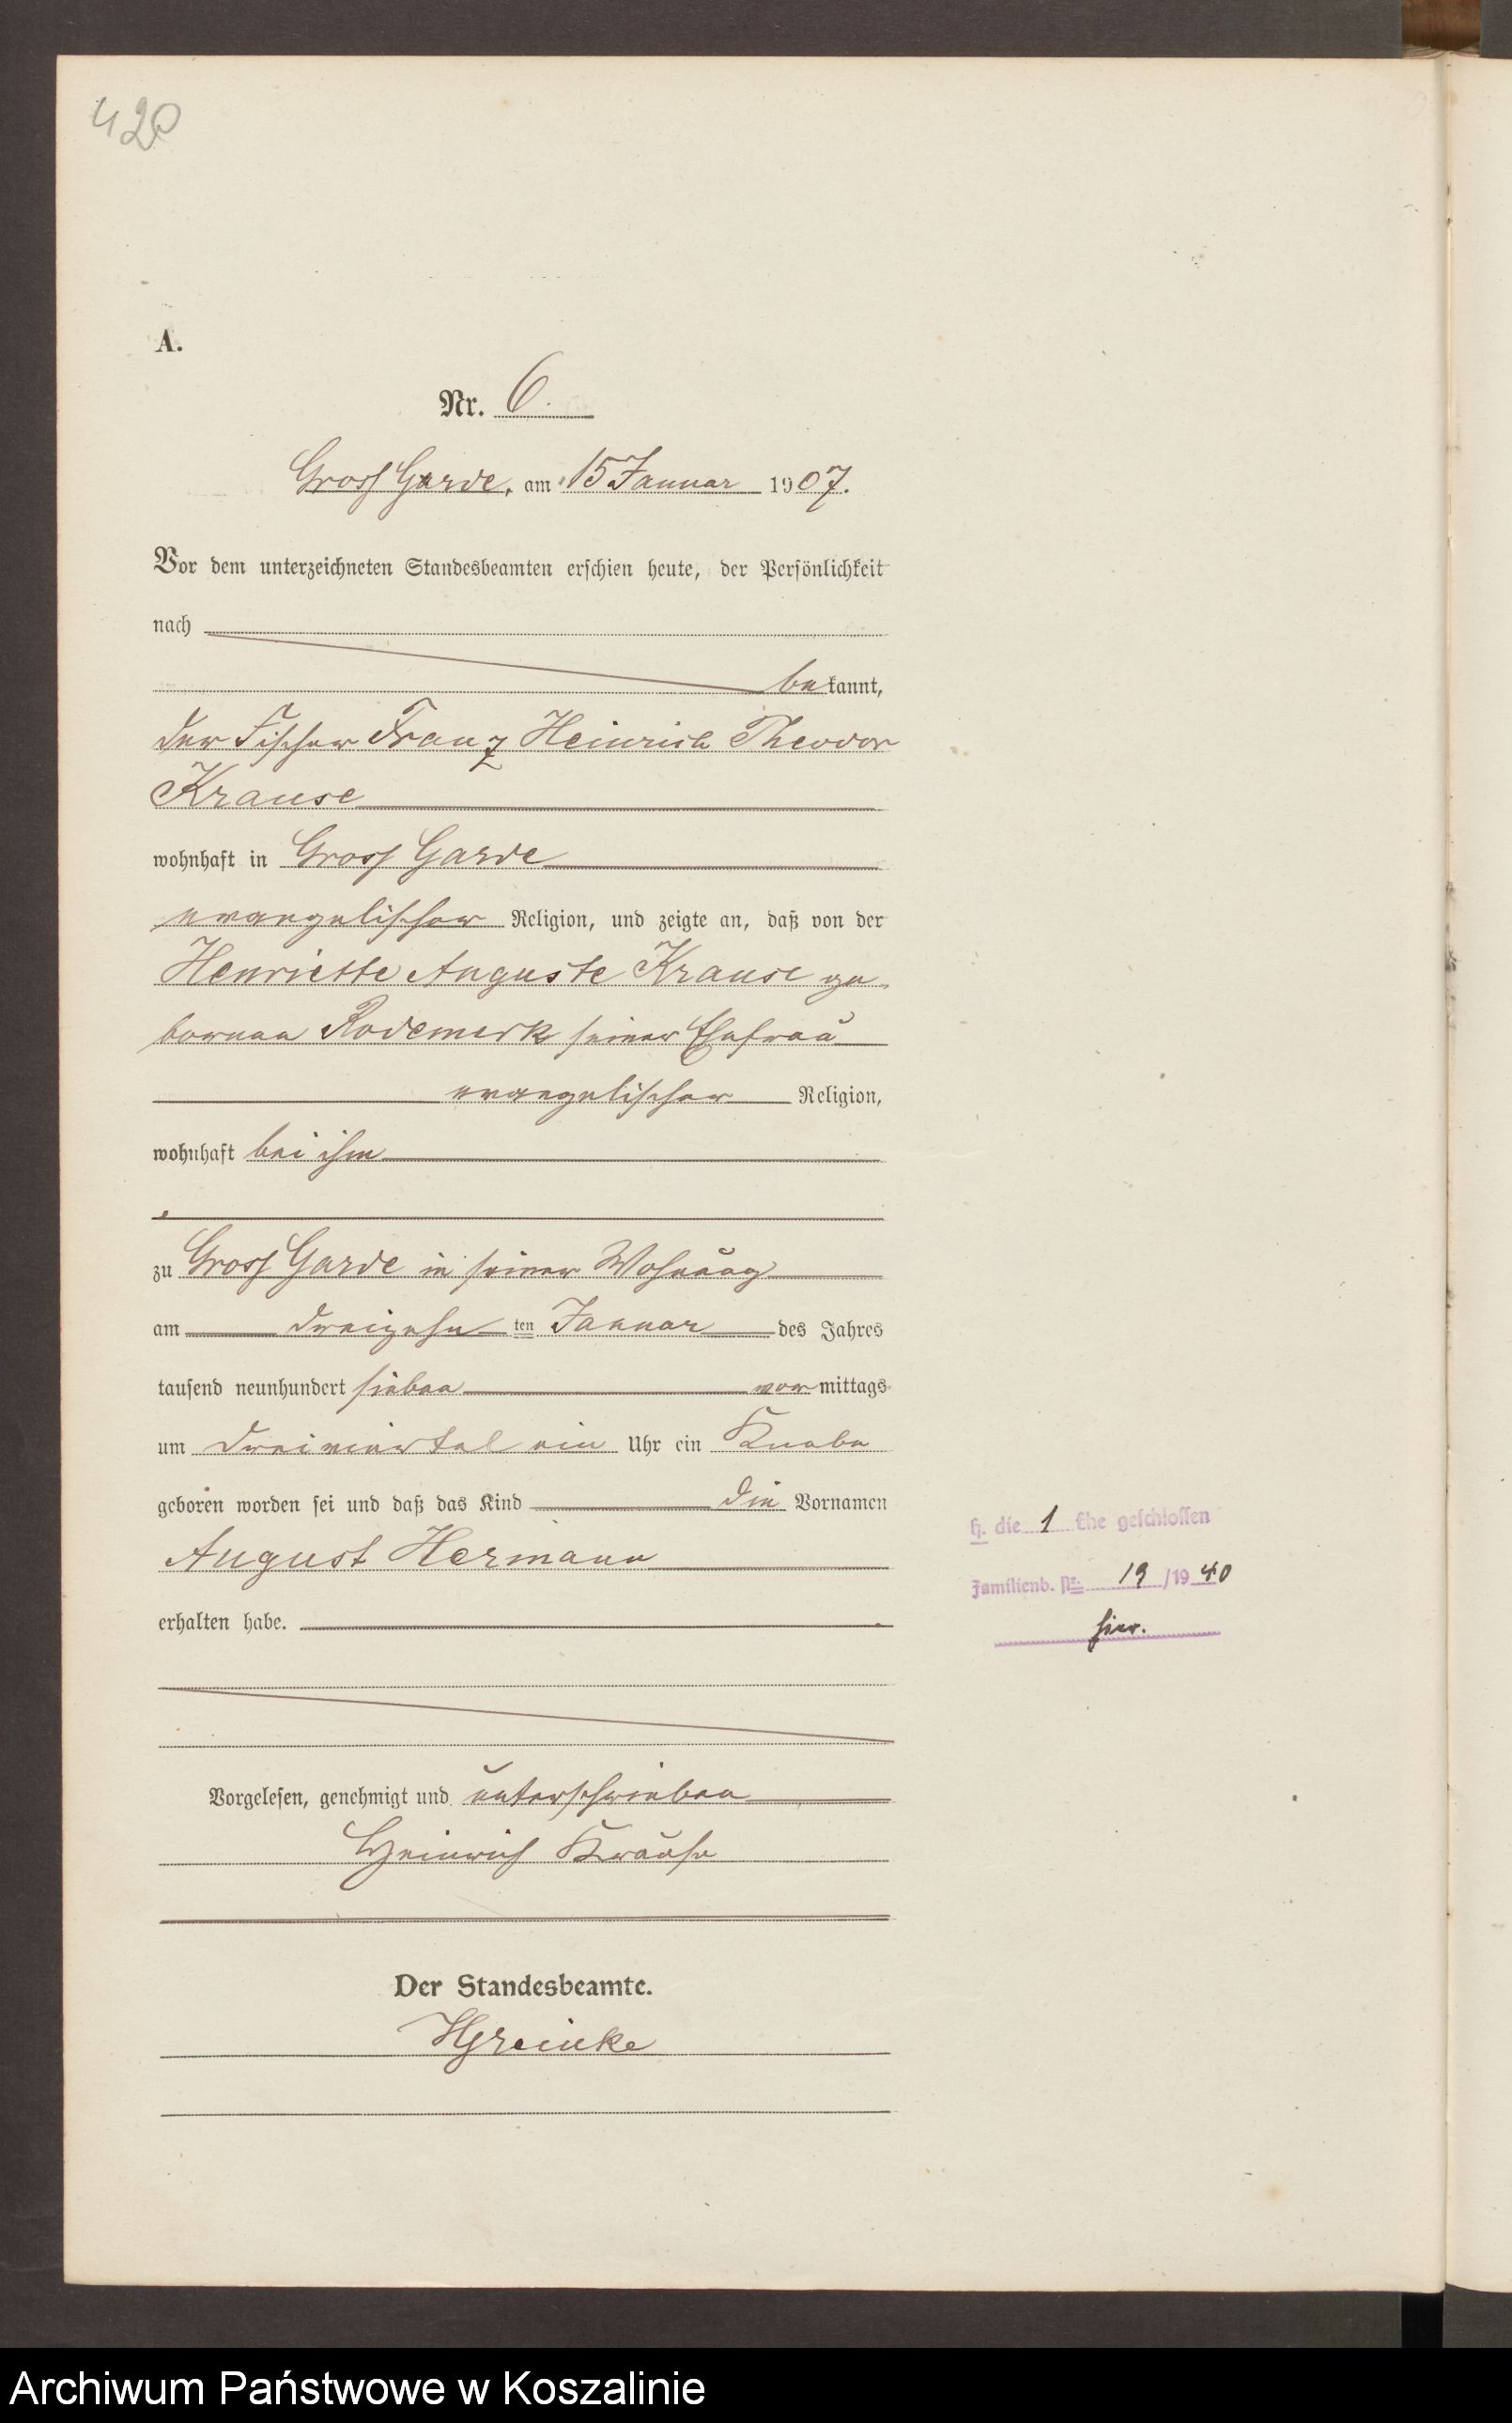 420
A.
Nr. 6.
Gross Garde, am 15 Januar 1907.
Vor dem unterzeichneten Standesbeamten erschien heute, der Persönlichkeit
nach
bekannt,
der Fischer Franz Heinrich Theodor
Krause
wohnhaft in Gross Garde
evangelischer Religion, und zeigte an, daß von der
Henriette Auguste Krause ge-
bornen Rodemerk seiner Ehefrau
evangelischer Religion,
wohnhaft bei ihm
zu Gross Garde in seiner Wohnung
am dreizehn ten Januar des Jahres
tausend neunhundert sieben vor mittags
um dreiviertel ein Uhr ein Knabe
geboren worden sei und daß das Kind die Vornamen
August Hermann
H. die 1 Ehe geschlossen
Familienb. Nr. 19 /19 40
hier.
erhalten habe.
Vorgelesen, genehmigt und unterschrieben
Heinrich Krause
Der Standesbeamte.
Archiwum Państwowe w Koszalinie